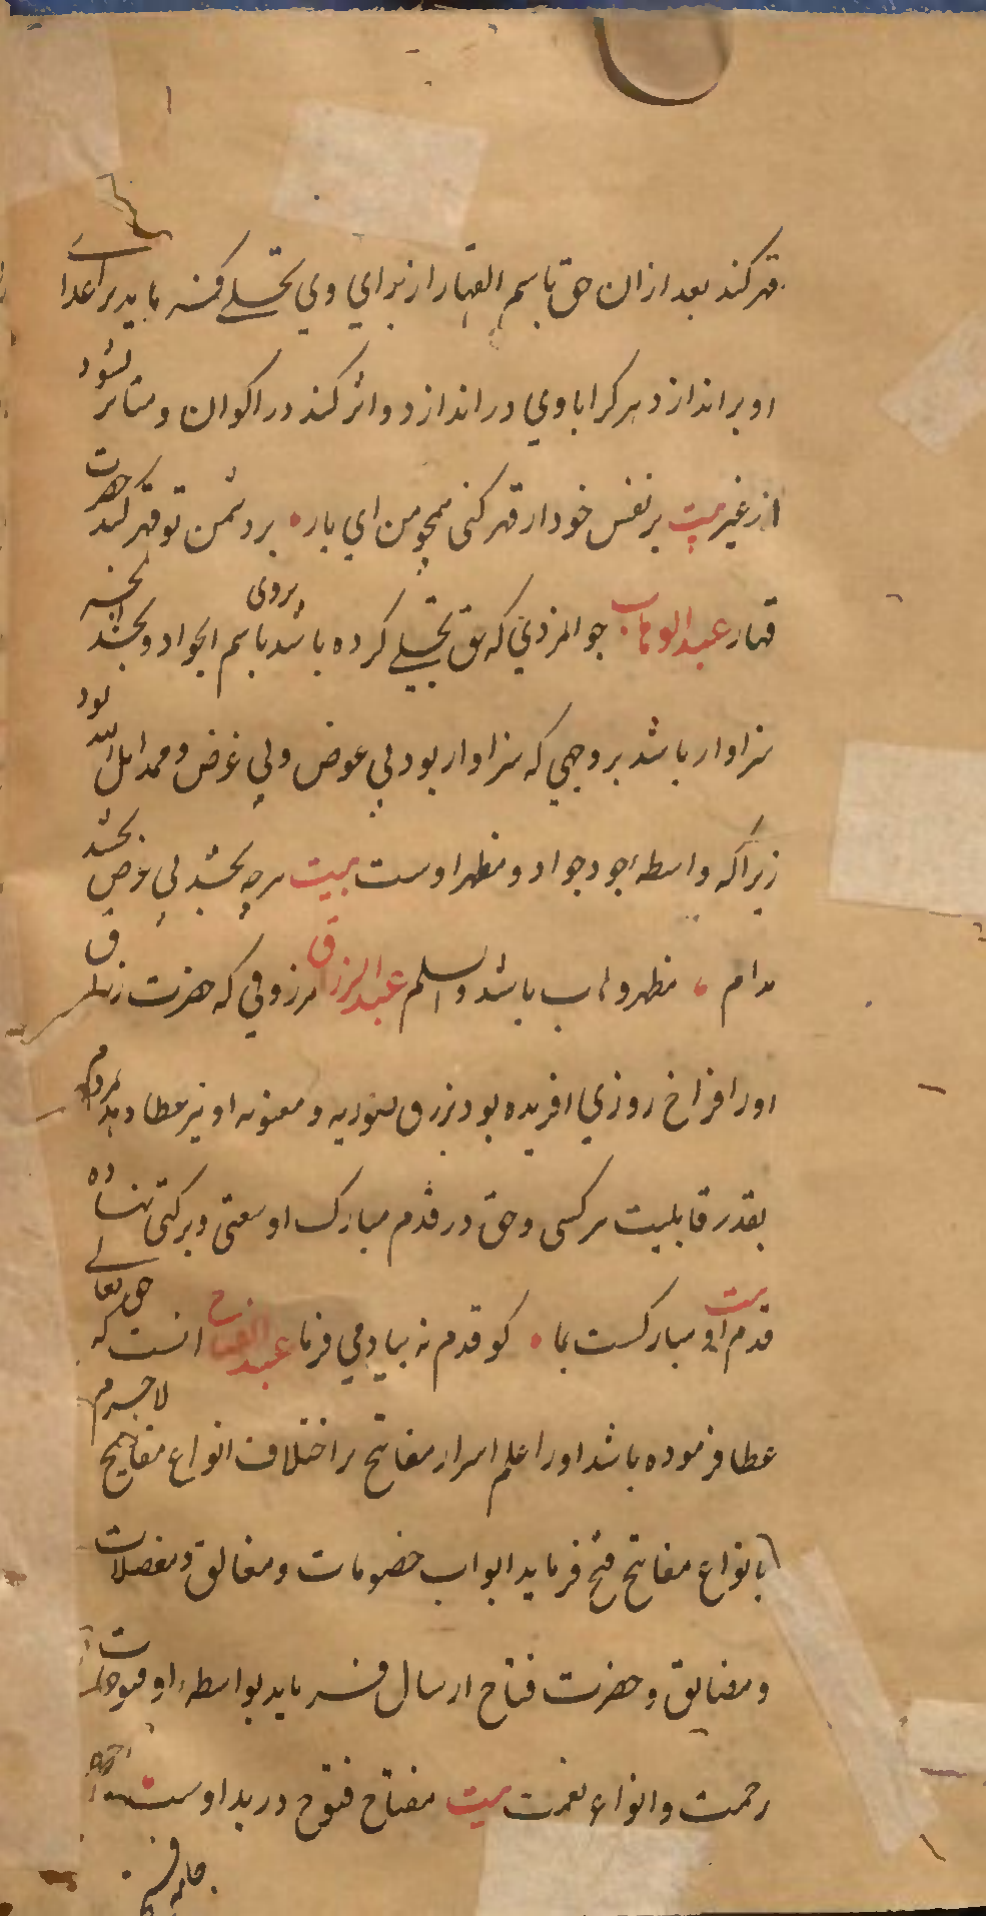 قهر کند بعد از ان حق باسم القهار از براي وي تجلے فرماید بر اعداے
او بر اندازد هر کرا با وي در اندازد و اثر کند در اکوان و متاثر نشود
از غیر بیت بر نفس خود ار قهر کنی همچو من اي یار • بر دشمن تو قهر کند حضرت
قهار عبد الوهاب جوانمردي که حق تجلے کرده باشد بروی باسم الجواد و بخشد انچه
سزاوار باشد بر وجهي که سزاوار بود بي عوض وبي غرض و ممد اهل الله بود
زیرا که واسطه جود جواد و مظهر اوست بیت هرچه بخشد بي عوض بخشد
مدام • مظهر وهاب باشد والسلم عبد الرزاق مرزوقي که حضرت رزاق
اورا فراخ روزي افریده بود برزق صوریه و معنویه او نیز عطا دهد بمردم
بقدر قابلیت هر کسی وحق در قدم مبارک او سعتی و برکتی نهاده
بیت قدم او مبارکست بما • کو قدم نه بیا و مي فرما عبد الفتاح انست که حق تعالے
عطا فرموده باشد اورا علم اسرار مفاتیح بر اختلاف انواع مفاتیح لاجرم
بانواع مفاتیح فتح فرماید ابواب خصومات و مغالق و معضلات
و مضایق و حضرت فتاح ارسال فرماید بواسطه او فتوحات
رحمت وانواع نعمت بیت مفتاح فتوح در ید اوست •